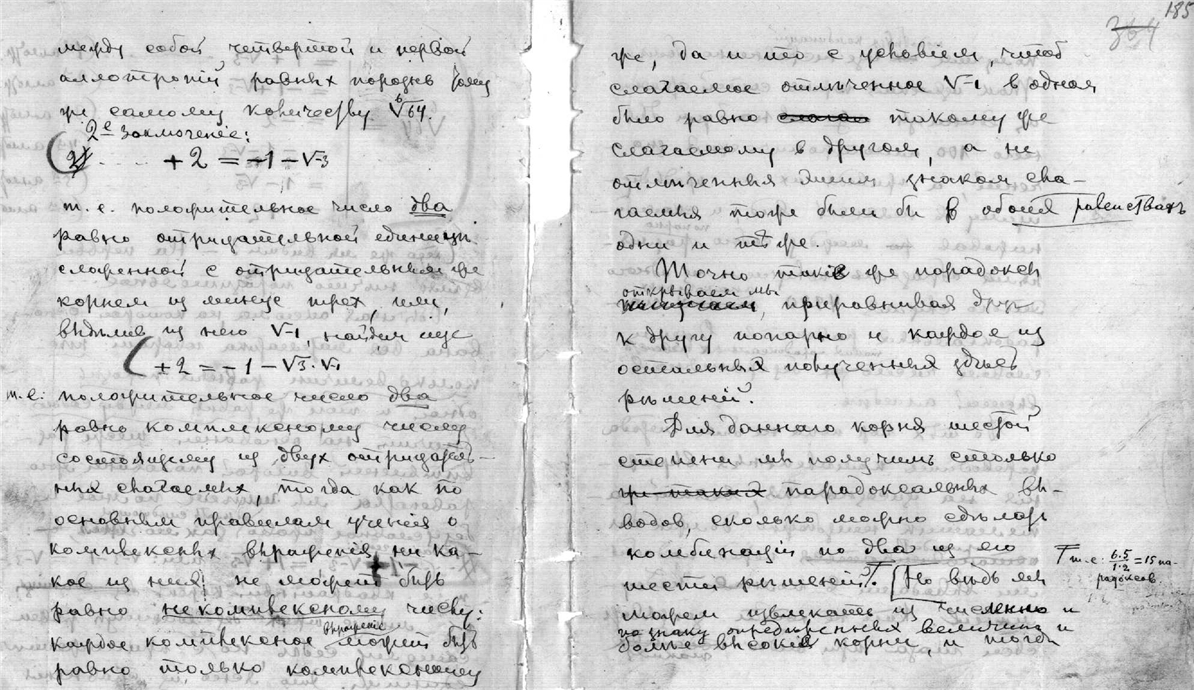 между собой четвертой и первой
аллотропий равных порознь тому
же самому количеству ⁶√64.
2е Заключение:
+ 2 = − 1 − √-3
т. е. положительное число два
равно отрицательной единице
сложенной с отрицательным же
корнем из минус трех, или,
выделив из него √-1 найдем еще
+ 2 = − 1 − √3 · √-1
т. е. положительное число два
равно комплексному числу
состоящему из двух отрицатель-
ных слагаемых, тогда как по
основным правилам учения о
комплексных выражениях ни ка-
кое из них не может быть
равно некомплексному числу:
каждое комплексное выражение может быть
равно только комплексному
185
364
же, да и то с условием, чтоб
слагаемое отмеченное √-1 в одном
было равно такому же
слагаемому в другом, а не
отмеченныя этим знаком сла-
гаемыя тоже были бы в обоих равенствах
одни и те же.
Точно такие же парадоксы
открываем мы, приравнивая друг
к другу попарно и каждое из
остальных полученных здесь
решений.
Для данного корня шестой
степени мы получим столько
же таких парадоксальных вы-
водов, сколько можно сделать
комбинаций по два из его
шести решений. Но ведь мы
т. е. 6.5/1.2 = 15 па-
радоксов.
можем извлекать из численно и
по знаку определенных величин и
более высокия корни, и тогда